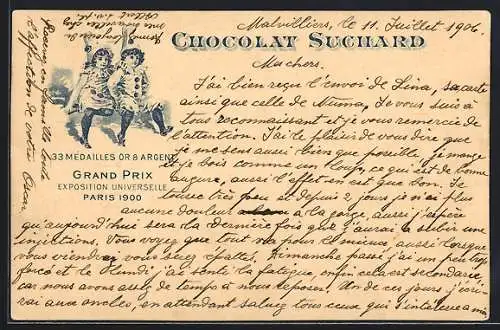 Malvilliers, le 11 Juillet 1906.
CHOCOLAT SUCHARD
Mes chers.
J'ai bien reçu l'envoi de Lina, sa carte
ainsi que celle de Numa, Je vous suis à
tous reconnaissant et je vous remercie de
l'attention. J'ai le plaisir de vous dire que
je me sens aussi bien que possible, je mange
et je bois comme un loup, ce qui est de bonne
augure, aussi l'effet en est que bon. Je
tousse très peu et depuis 2 jours je n'ai plus
aucune douleur à la gorge, aussi j'espère
qu'aujourd'hui sera la dernière fois que j'aurai à subir une
injections. Vous voyez que tout va pour le mieux, aussi lorsque
vous viendrez vous serez épatés. Dimanche passé j'ai un peu trop
forcé et le lundi j'ai senti la fatigue, enfin cela est secondaire
car nous avons assez de temps à nous reposer. Un de ces jours j'écri-
rai aux oncles, en attendant saluez tous ceux qui s'intéresse à moi
33 MÉDAILLES OR & ARGENT
GRAND PRIX
EXPOSITION UNIVERSELLE
PARIS 1900
Recevez
d'affection de votre Oscar